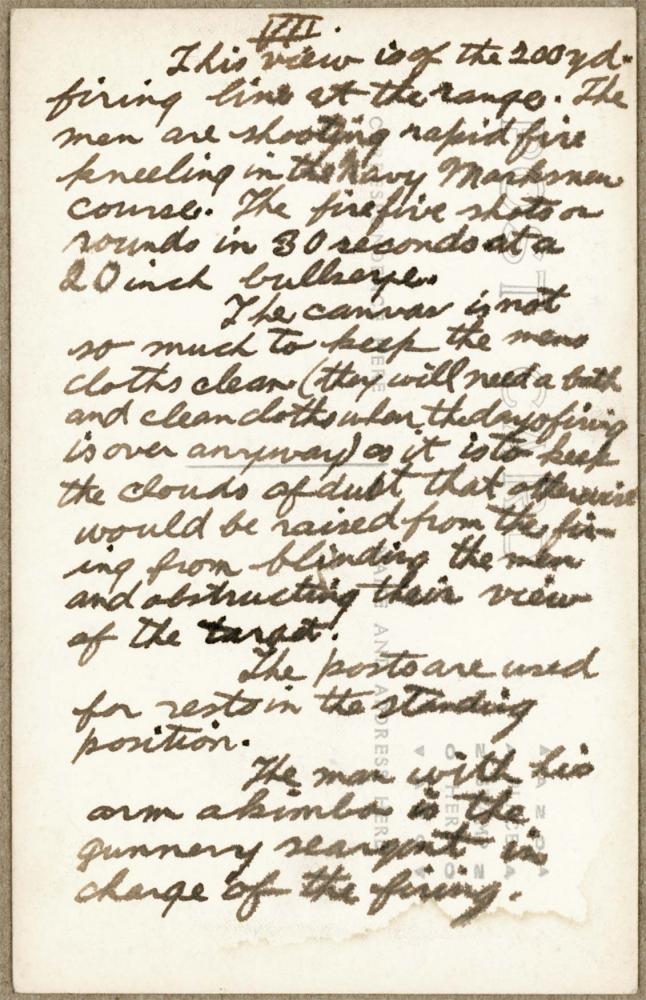 VIII.
This view is of the 200 yd.
firing line at the range. The
men are shooting rapid fire
kneeling in the Navy Marksmen
course. The fire five shots or
rounds in 30 seconds at a
20 inch bullseye.
The canvas is not
so much to keep the mens
cloths clean (they will need a bath
and clean cloths when the day of firing
is over anyway) as it is to keep
the clouds of dust that otherwise
would be raised from the fir-
ing from blinding the men
and obstructing their view
of the target.
The posts are used
for rests in the standing
position.
The man with his
arm akimbo is the
gunnery seargnt in
charge of the firing.
POST CARD
CORRESPONDENCE HERE
NAME AND ADDRESS HERE